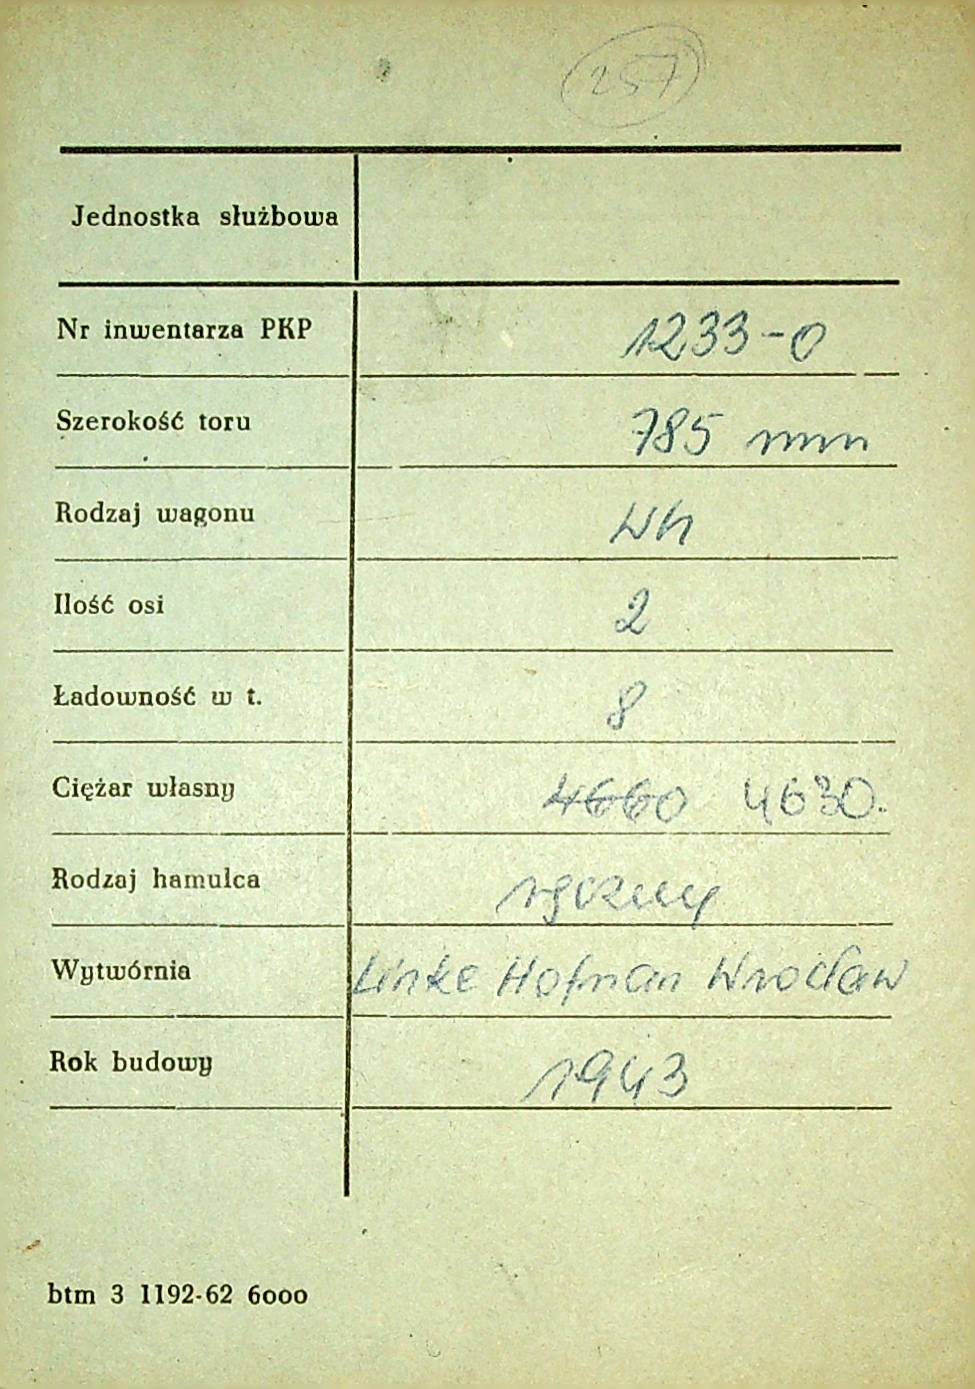 257
Jednostka służbowa
Nr inwentarza PKP 1233-0
Szerokość toru 785 mm
Rodzaj wagonu Wh
Ilość osi 2
Ładowność w t. 8
Ciężar własny 4660 4630.
Rodzaj hamulca ręczny
Wytwórnia Linke Hofman Wrocław
Rok budowy 1943
btm 3 1192-62 6000